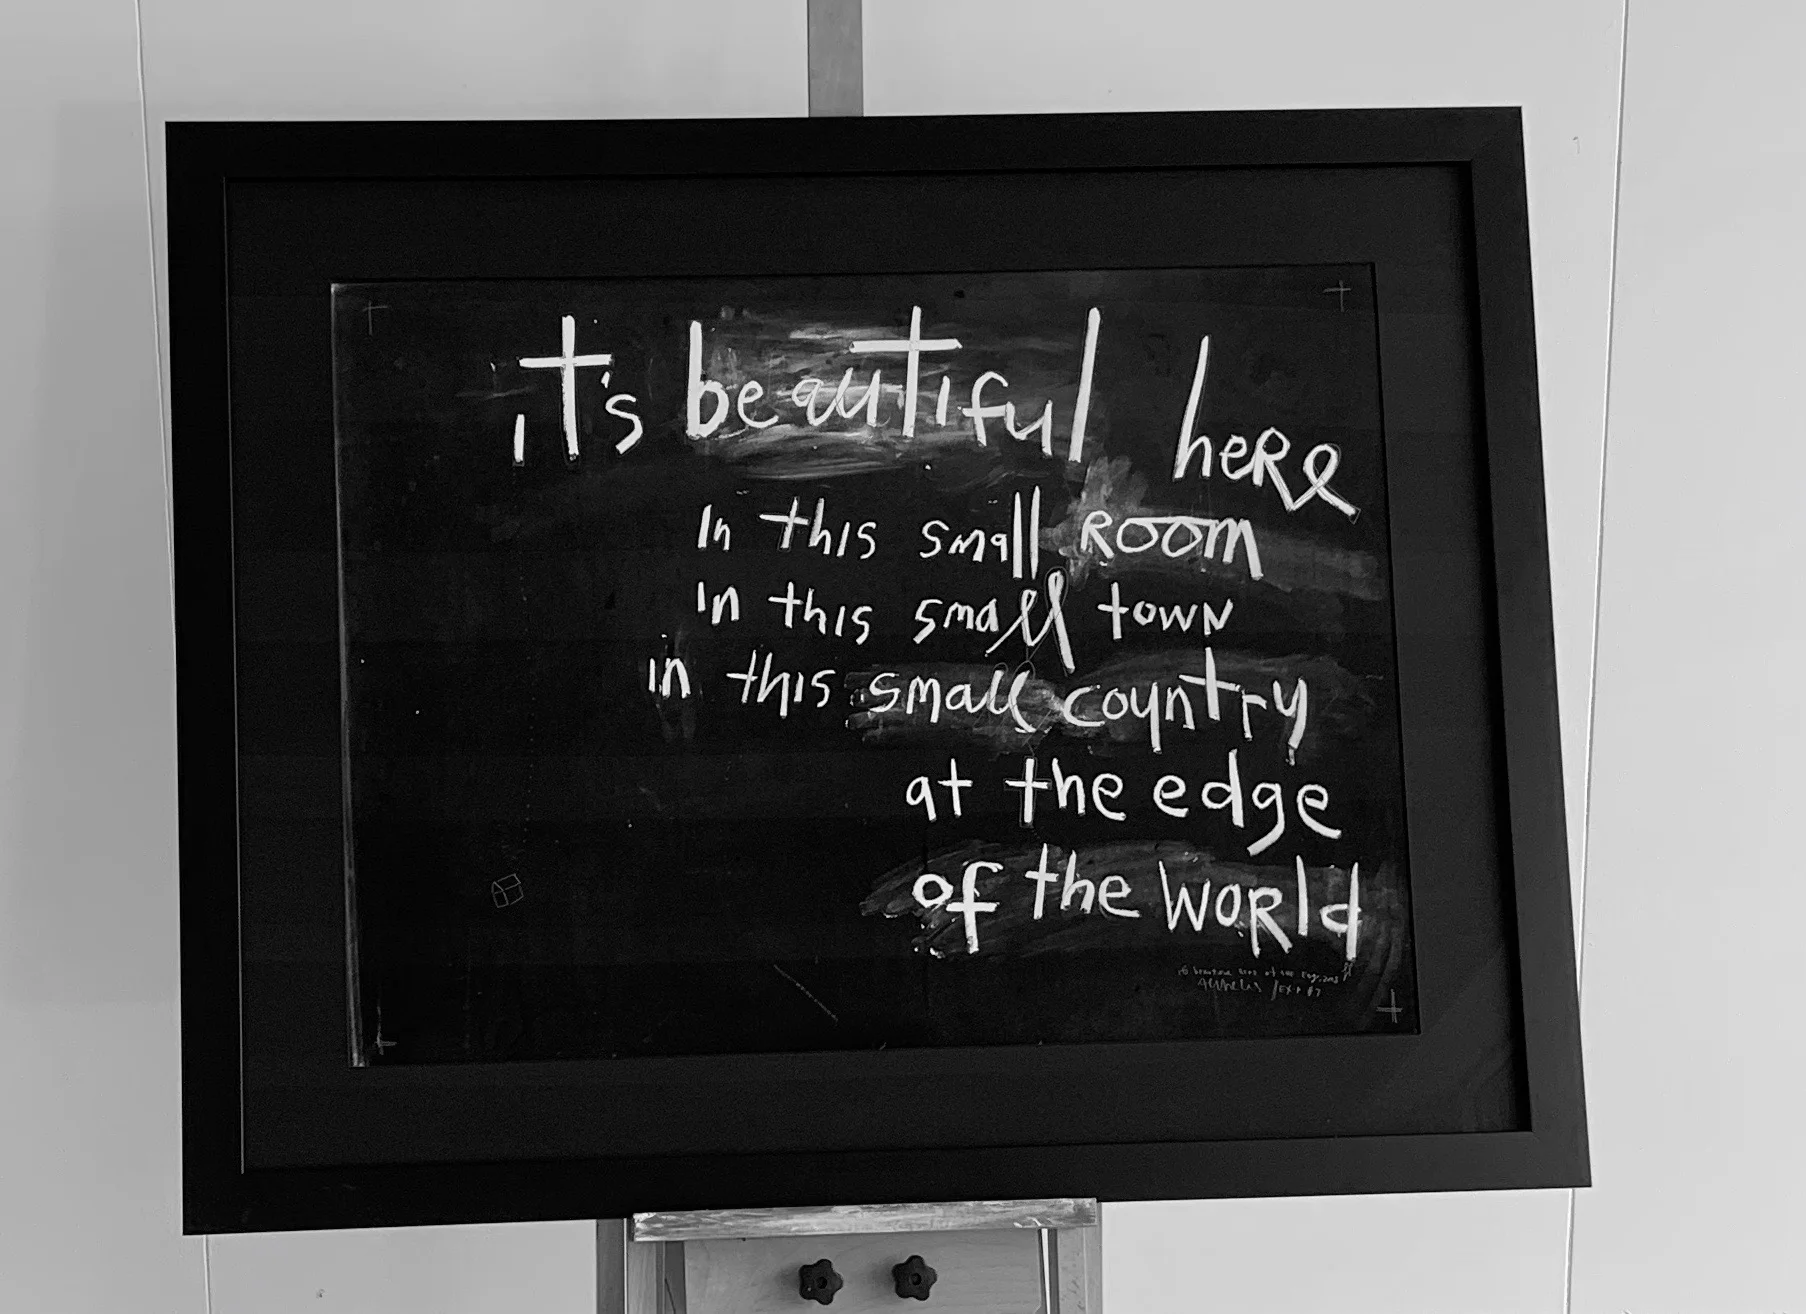 it's beautiful here
in this small ROOM
in this small town
in this small country
at the edge
of the WORld